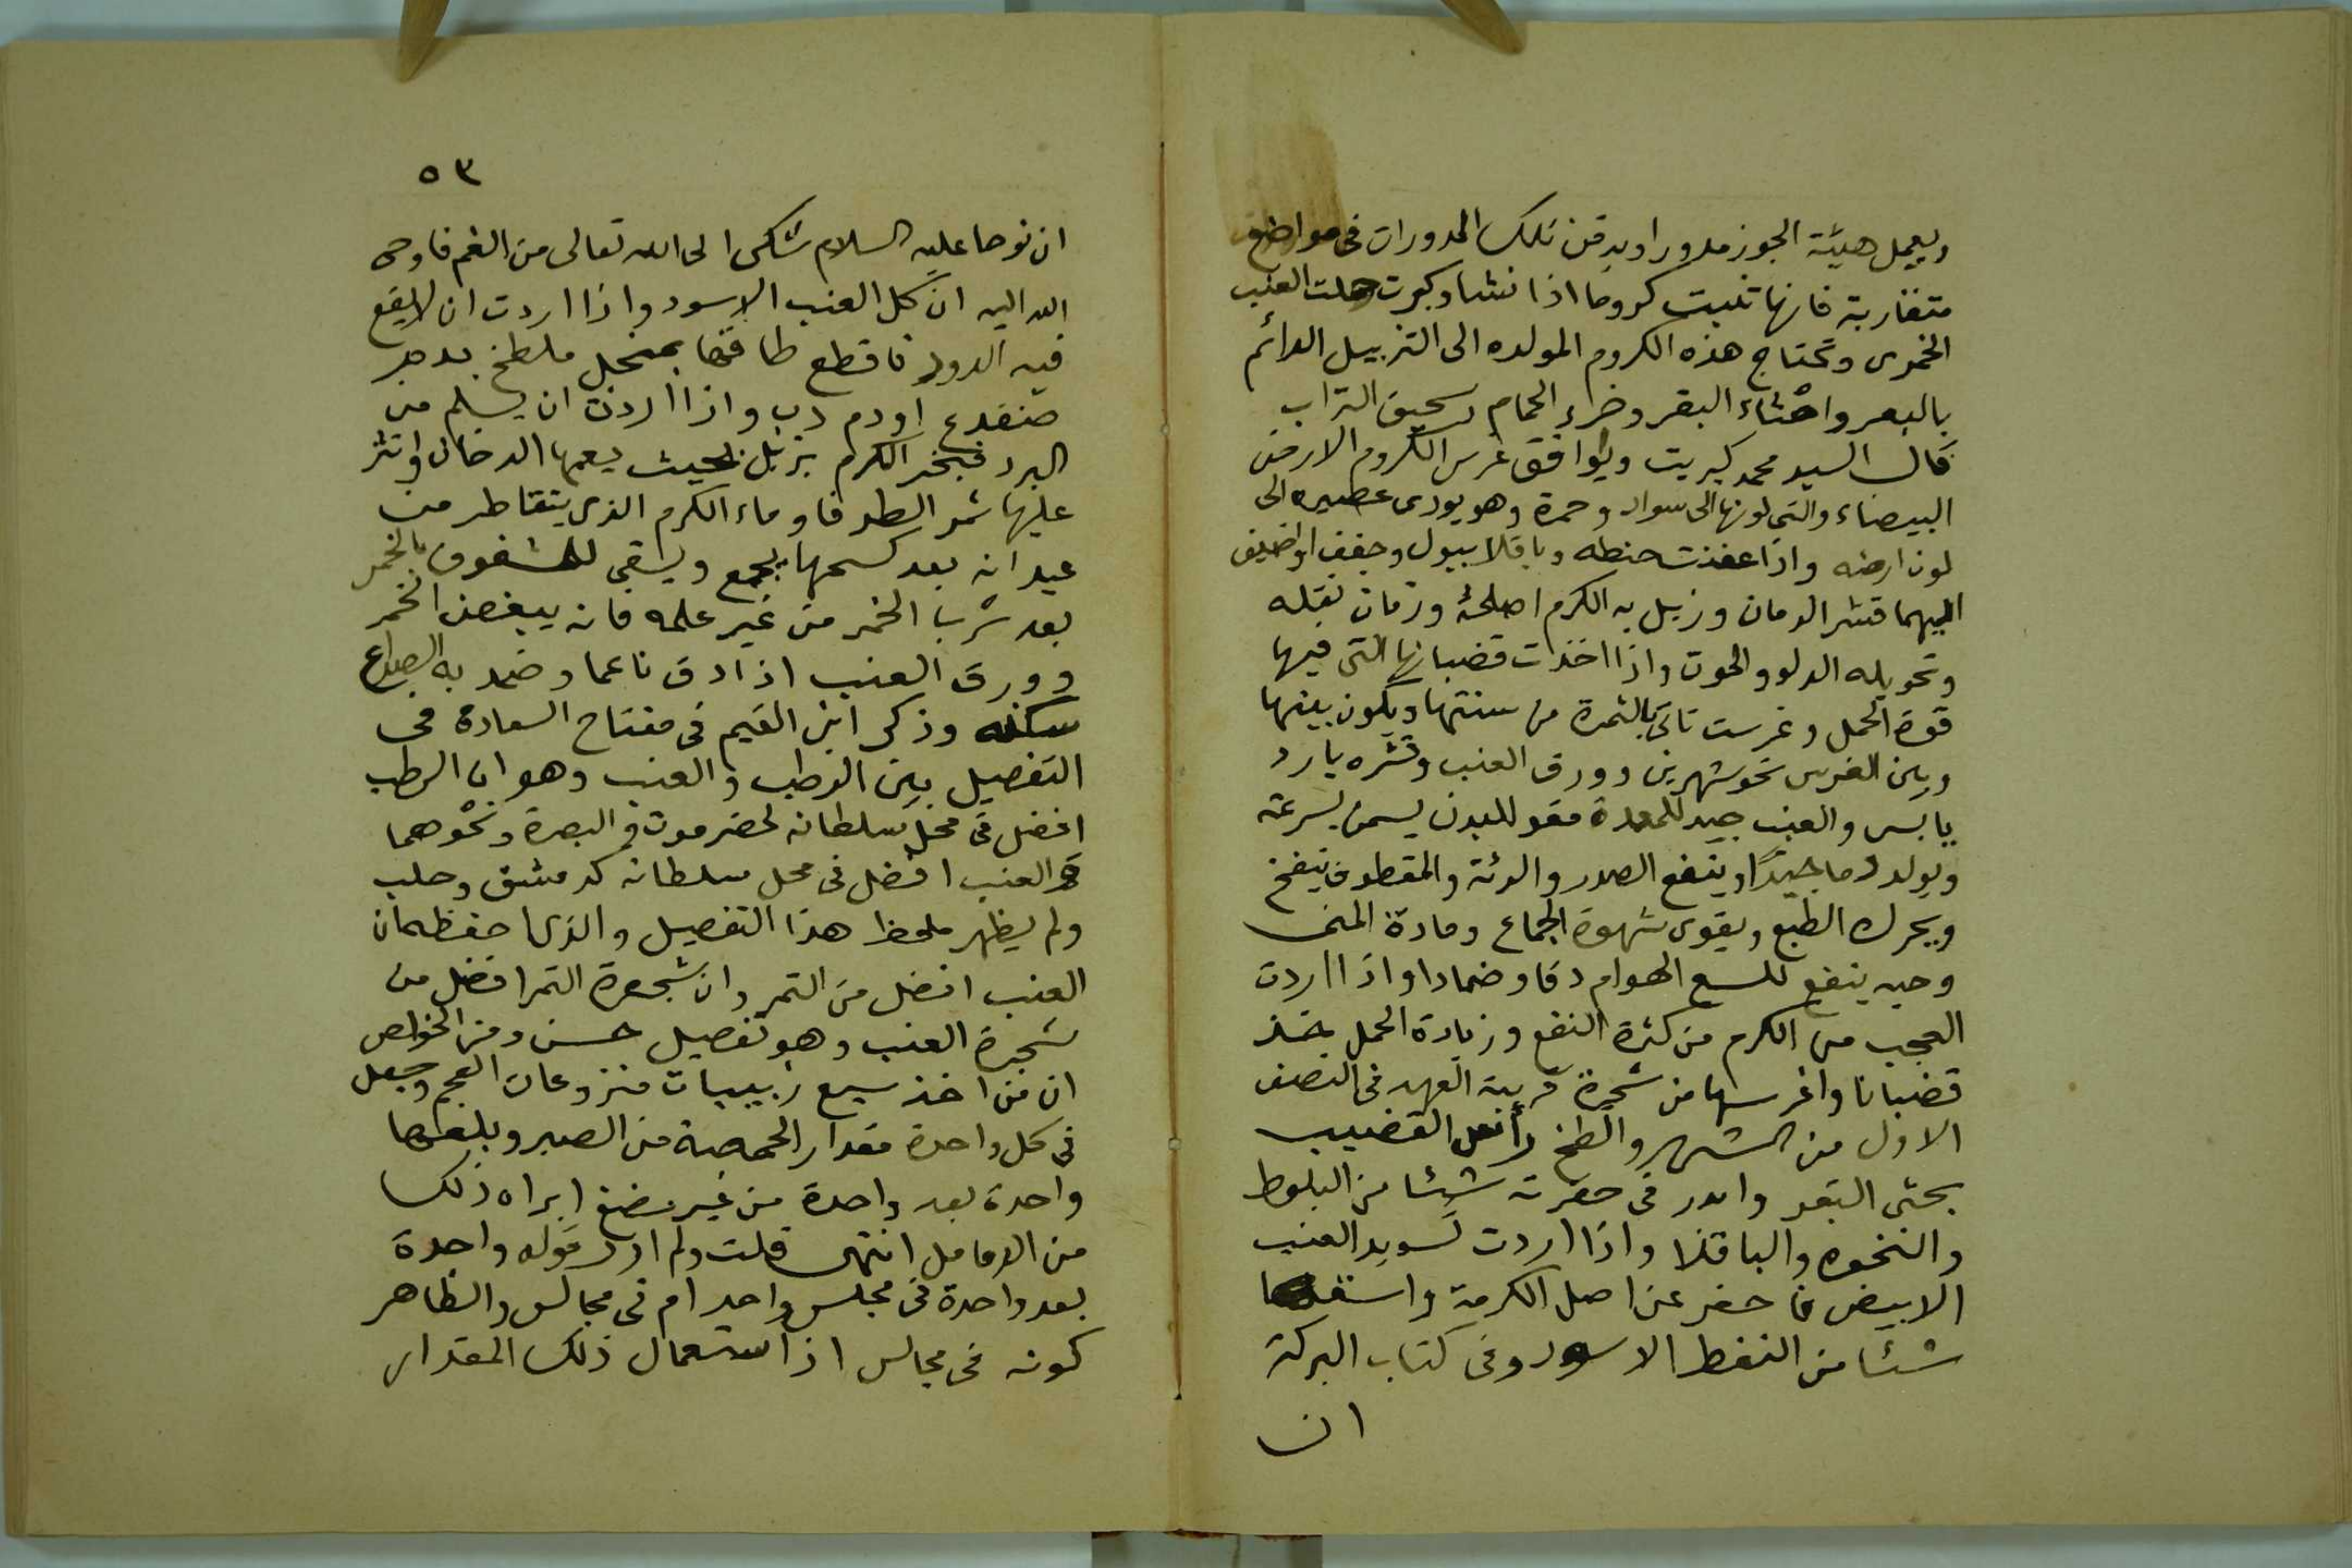 ويعمل هيئة الجوز مدورا ويدفن تلك المدورات فى مواضع
متقاربة فانها تنبت كروما اذا نشا وكبرت حملت العنب
الخمرى وتحتاج هذه الكروم المولده الى التزبيل الدائم
بالبعر واخثاء البقر وخرء الحمام وسحيق التراب
قال السيد محمد كبريت ويوافق غرس الكروم الارض
البيضاء والتى لونها الى سواد وحمرة وهو يودى عصيره الى
لون ارضه واذا عفنت حنطه وباقلا ببول وجفف واضيف
اليهما قشر الرمان وزبل به الكرم اصلحه وزمان نقله
وتحويله الدلو والحوت واذا اخذت قضبانها التى فيها
قوة الحمل وغرست تاتى بالثمرة من سنتها ويكون بينها
وبين الغرس نحو شهرين وورق العنب وقشره بارد
يابس والعنب جيد للمعدة مقو للبدن يسمن بسرعة
ويولد دما جيدا وينفع الصدر والرئة والمقطوف ينفخ
ويحرك الطبع ويقوى شهوة الجماع ومادة المنى
وحبه ينفع للسع الهوام دقا وضمادا واذا اردت
العجب من الكرم من كثرة النفع وزيادة الحمل فخذ
قضبانا واغرسها من شجرة قريبة العهد فى النصف
الاول من الشهر والطخ راس القضيب
بخثى البقر وابدر فى حفرته شيئا من البلوط
والنخوه والباقلا واذا اردت تسويد العنب
الابيض فاحفر عن اصل الكرمة واسقها
شئا من النفط الاسود وفى كتاب البركة
ان
٥٣
ان نوحا عليه السلام شكى الى الله تعالى من الغم فاوحى
الله اليه ان كل العنب الاسود واذا اردت ان لا يقع
فيه الدود فاقطع طاقتها بمنجل ملطخ بدم
ضفدع او دم دب واذا اردت ان يسلم من
البرد فبخر الكرم بزبل بحيث يعمها الدخان وانثر
عليها ثمر الطرفا وماء الكرم الذى يتقاطر من
عيدانه بعد كسحها يجمع ويسقى للمشغوف بالخمر
بعد شرب الخمر من غير علمه فانه يبغض الخمر
وورق العنب اذا دق ناعما وضمد به الصداع
سكنه وذكر ابن القيم فى مفتاح السعادة فى
التفصيل بين الرطب والعنب وهو ان الرطب
افضل فى محل سلطانه لحضرموت والبصرة ونحوهما
والعنب افضل فى محل سلطانه كدمشق وحلب
ولم يظهر ملحظ هذا التفصيل والذى احفظه ان
العنب افضل من التمر وان شجرة التمر افضل من
شجرة العنب وهو تفصيل حسن ومن الخواص
ان من اخذ سبع زبيبات منزوعات العجم وجعل
فى كل واحدة مقدار الحمصة من الصبر وبلعها
واحدة بعد واحدة من غير مضغ ابراه ذلك
من الدمامل انتهى قلت ولم ادر قوله واحدة
بعد واحدة فى مجلس واحد ام فى مجالس والظاهر
كونه فى مجالس اذ استعمال ذلك المقدار